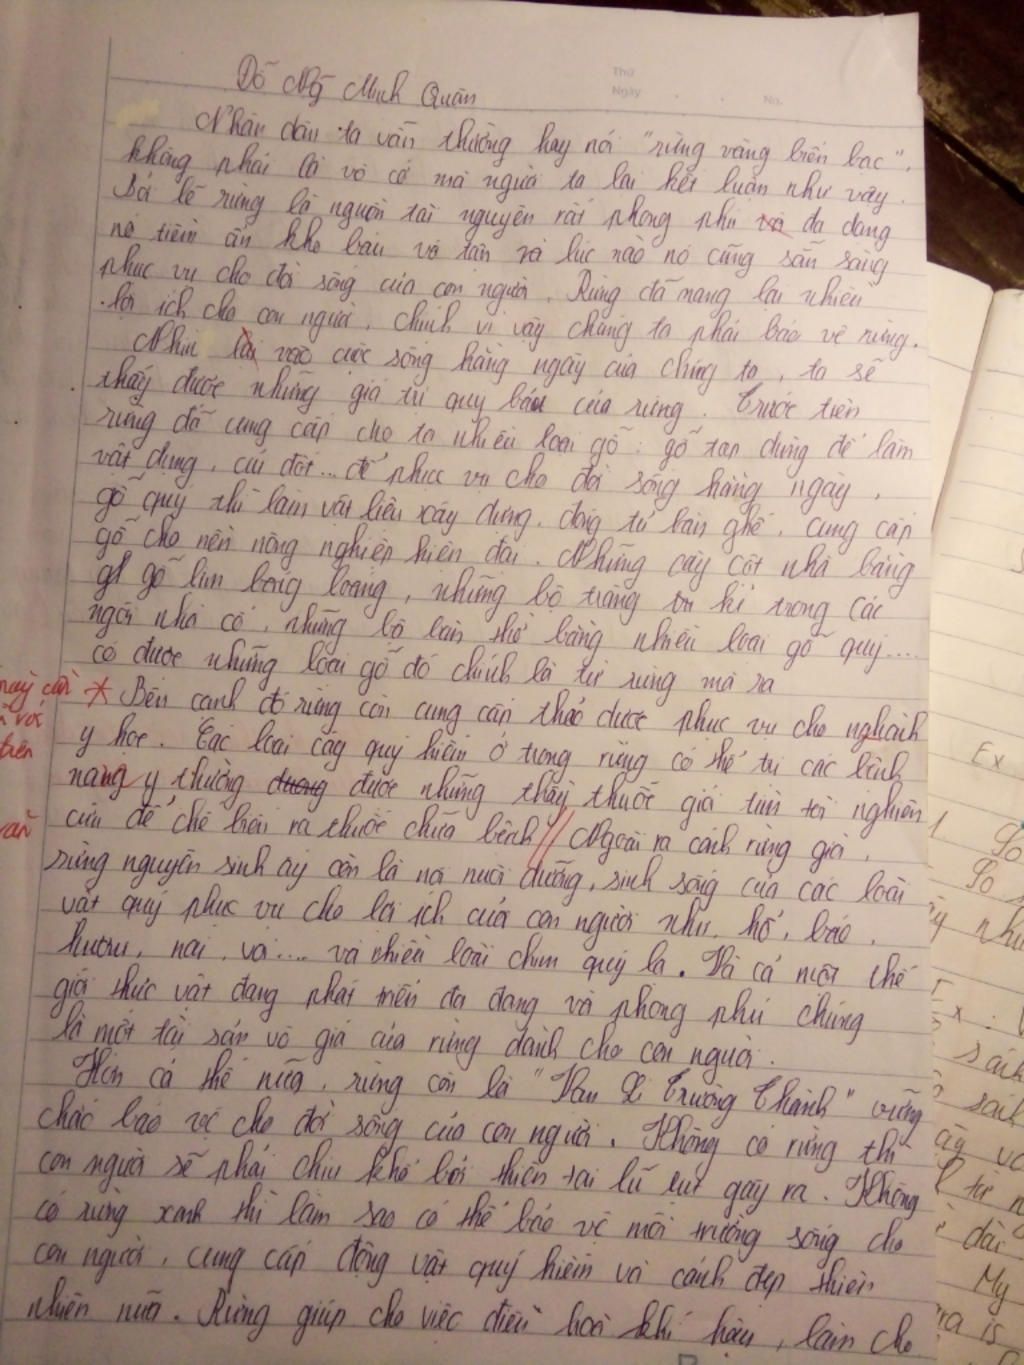 Đỗ Ngọ Minh Quân
Thứ
Ngày No.
Nhân dân ta vẫn thường hay nói "rừng vàng biển bạc",
không phải là vô cớ mà người ta lại kết luận như vậy.
Bởi lẽ rừng là nguồn tài nguyên rất phong phú và đa dang
nó tiềm ẩn kho báu vô tận và lúc nào nó cũng sẵn sàng
phục vụ cho đời sống của con người. Rừng đã mang lại nhiều
lợi ích cho con người, chính vì vậy chúng ta phải bảo vệ rừng.
Nhìn lại vào cuộc sống hàng ngày của chúng ta, ta sẽ
thấy được những giá trị quý báu của rừng. Trước tiên
rừng đã cung cấp cho ta nhiều loại gỗ: gỗ tạp dùng để làm
vật dụng, củi đốt... để phục vụ cho đời sống hàng ngày,
gỗ quý thì làm vật liệu xây dựng, đóng tủ bàn ghế, cung cấp
gỗ cho nền nông nghiệp hiện đại. Những cây cột nhà bằng
gỗ lim bóng loáng, những bộ tràng kỉ trong các
ngôi nhà cổ, những bộ bàn thờ bằng nhiều loại gỗ quý....
có được những loại gỗ đó chính là từ rừng mà ra
này cần * Bên cạnh đó rừng còn cung cấp thảo dược phục vụ cho nghành
với y học. Các loại cây quý hiếm ở trong rừng có thể trị các bệnh
trên nang y thường được những thầy thuốc giỏi tìm tòi nghiên
cứu để chế biến ra thuốc chữa bệnh // Ngoài ra cánh rừng già,
rừng nguyên sinh ấy còn là nơi nuôi dưỡng, sinh sống của các loài
vật quý phục vụ cho lợi ích của con người như hổ, báo,
hươu, nai, voi.... và nhiều loài chim quý lạ. Và cả một thế
giới thực vật đang phát triển đa dạng và phong phú chúng
là một tài sản vô giá của rừng dành cho con người.
Hơn cả thế nữa, rừng còn là "Vạn Lí Trường Thành" vững
chắc bảo vệ cho đời sống của con người. Không có rừng thì
con người sẽ phải chịu khổ bởi thiên tai lũ lụt gây ra. Không
có rừng xanh thì làm sao có thể bảo vệ môi trường sống cho
con người, cung cấp động vật quý hiếm và cảnh đẹp thiên
nhiên nữa. Rừng giúp cho việc điều hoà khí hậu, làm cho
Ex
So
So
như
x :
sách
sách
từ
dài
My
is